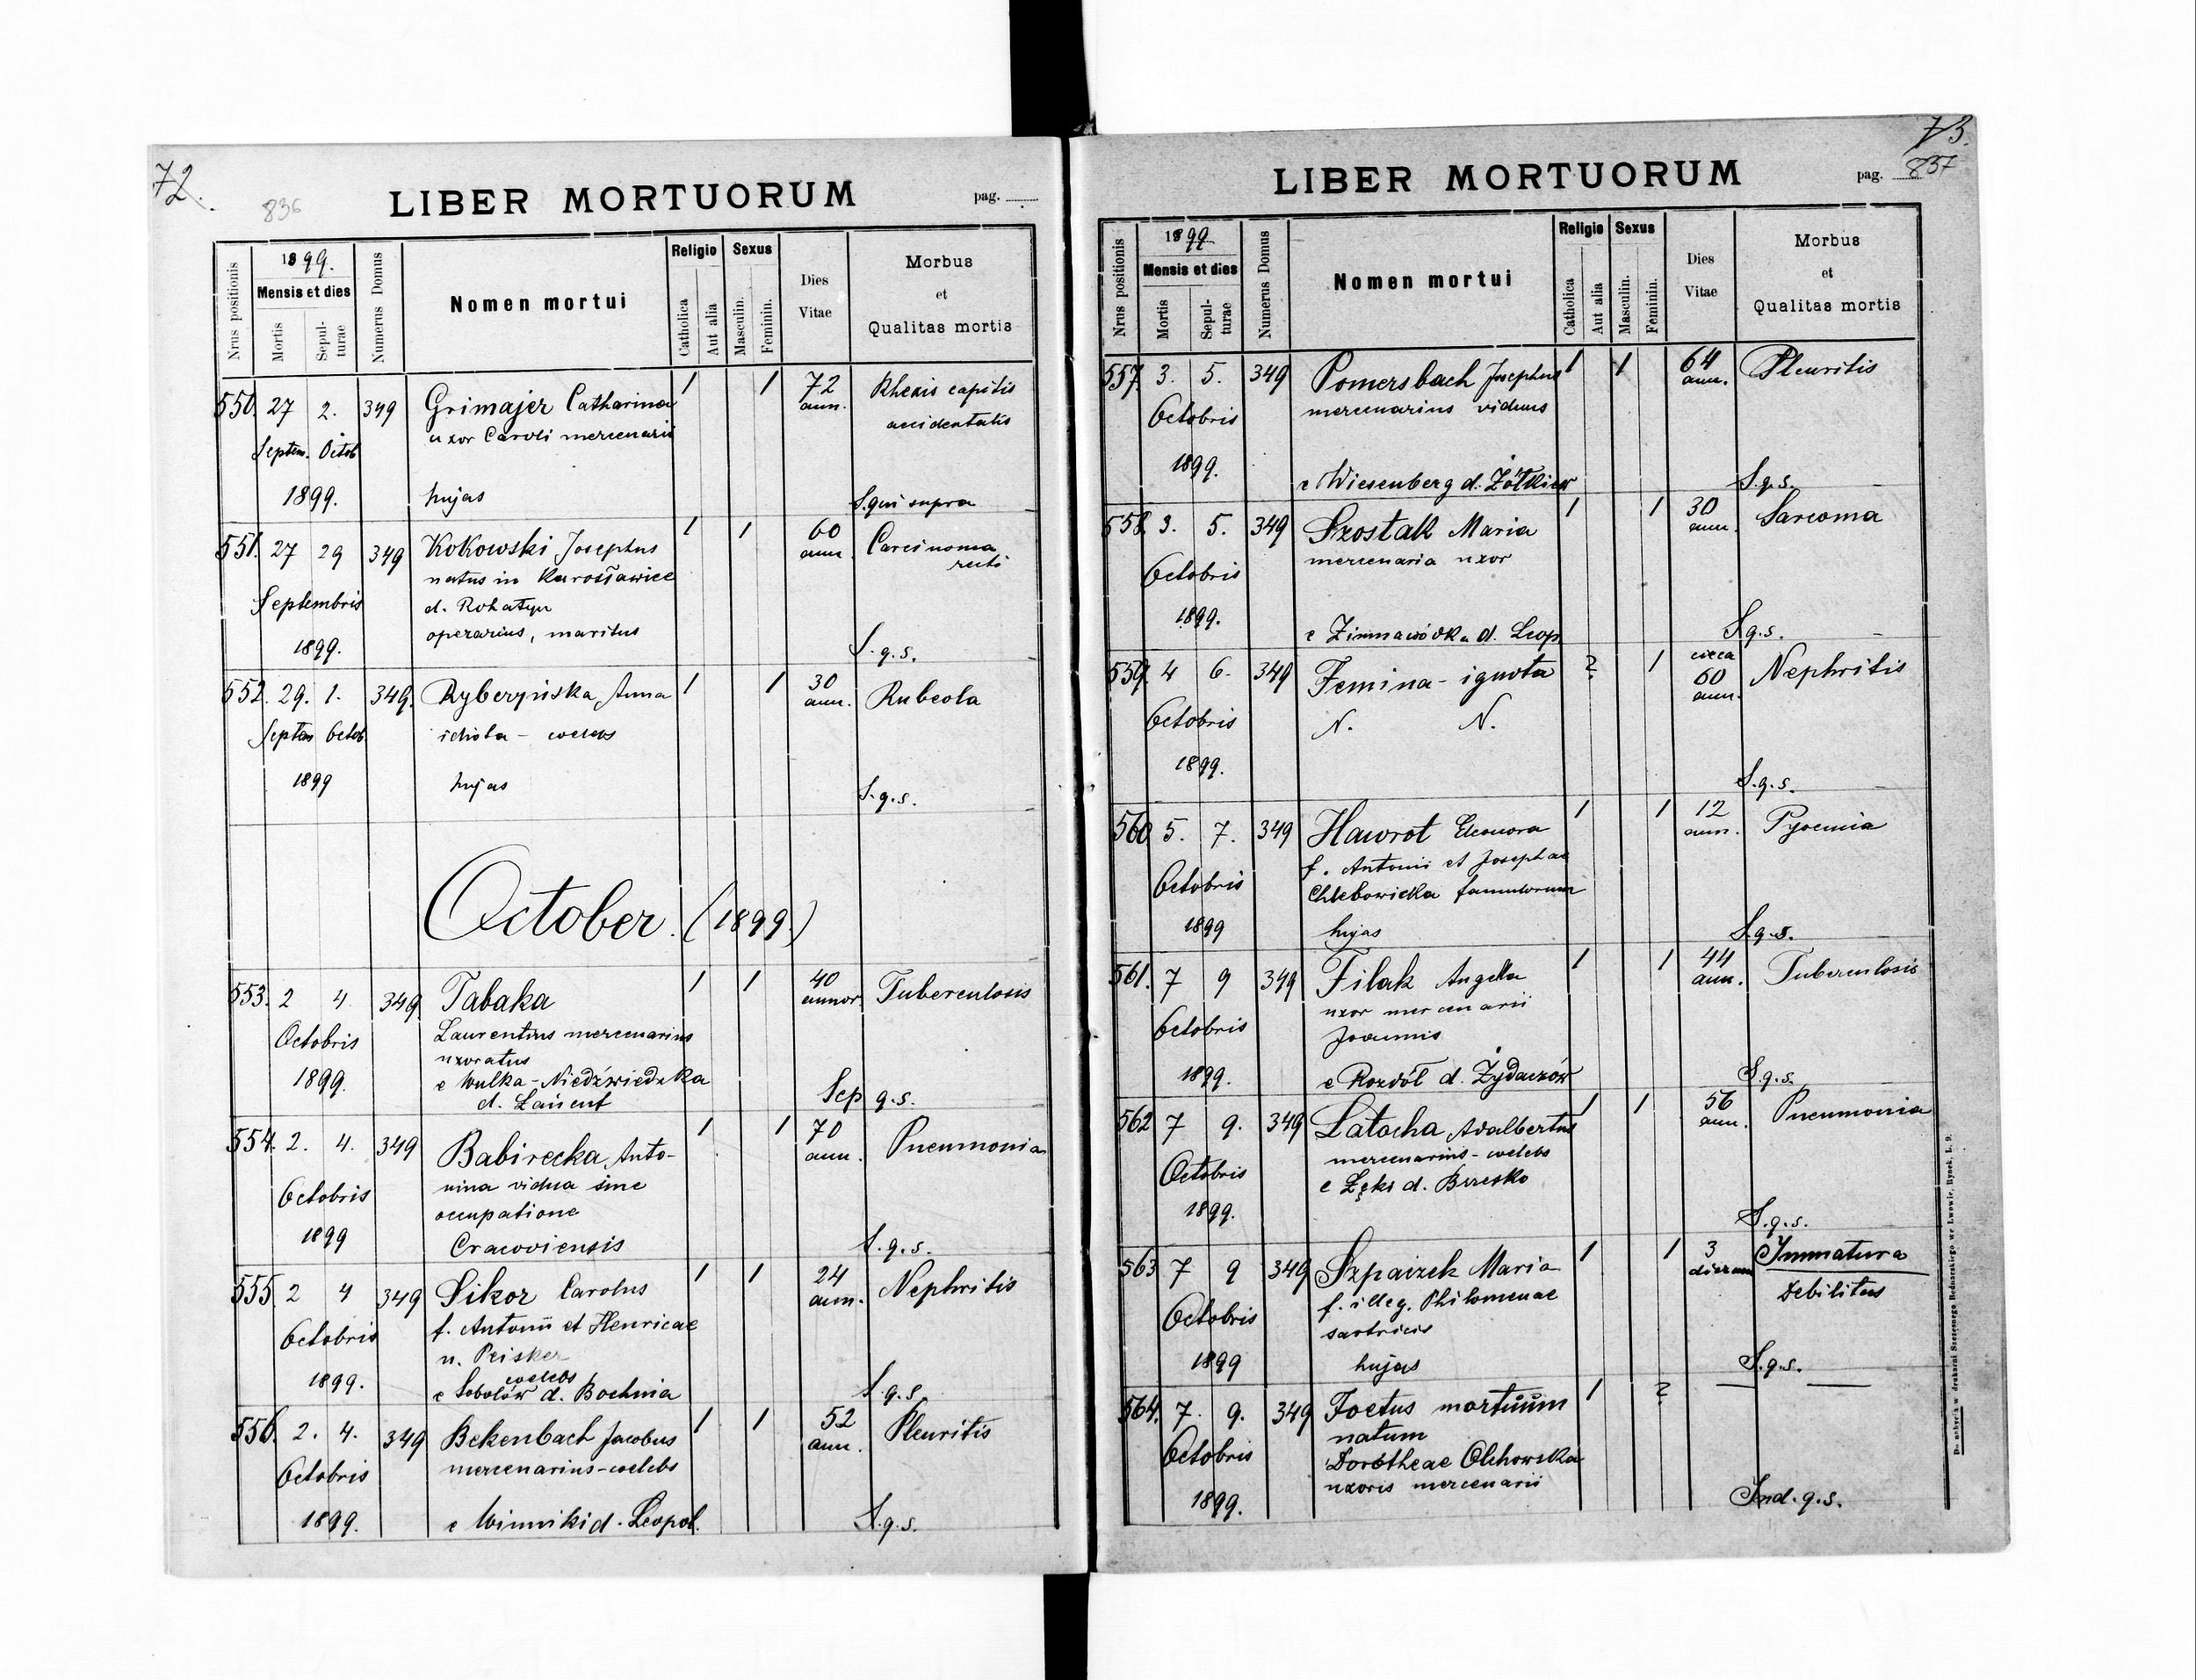 72.
836
LIBER MORTUORUM
pag.
Nrus positionis
1899.
Mensis et dies
Mortis
Sepul-
turae
Numerus Domus
Nomen mortui
Religio
Catholica
Aut alia
Sexus
Masculin.
Feminin.
Dies
Vitae
Morbus
et
Qualitas mortis
550. 27 2. 349 Grimajer Catharina 1 1 72 Rhexis capitis
uxor Caroli mercenarii ann. accidentalis
Septem. Octob
1899. hujas S. qui supra
551. 27 29 349 Kokowski Josephus 1 1 60 Carcinoma
natus in Kurosławice ann. recti
Septembris d. Rohatyn
1899. operarius, maritus S. q. s.
552. 29. 1. 349. Ryberzyńska Anna 1 1 30 Rubeola
Septem Octob. idiota - coelebs ann.
1899 hujas S. q. s.
October. (1899.)
553. 2 4. 349 Tabaka 1 1 40 Tuberculosis
Octobris Laurentius mercenarius annor
uxoratus
1899. e Wulka-Niedźwiedzka
d. Łańcut Sep q. s.
554. 2. 4. 349 Babirecka Anto- 1 1 70 Pneumonia
Octobris nina vidua sine ann.
occupatione
1899 Cracoviensis S. q. s.
555. 2 4 349 Sikor Carolus 1 1 24 Nephritis
Octobris f. Antonii et Henricae ann.
n. Peisker
coelebs
1899. e Sobolów d. Bochnia S. q. s.
556. 2. 4. 349 Bekenbach Jacobus 1 1 52 Pleuritis
Octobris mercenarius-coelebs ann.
1899. e Winniki d. Leopol. S. q. s.
73.
837
LIBER MORTUORUM
pag.
Nrus positionis
1899
Mensis et dies
Mortis
Sepul-
turae
Numerus Domus
Nomen mortui
Religio
Catholica
Aut alia
Sexus
Masculin.
Feminin.
Dies
Vitae
Morbus
et
Qualitas mortis
557. 3. 5. 349 Pomersbach Josephus 1 1 64 Pleuritis
Octobris mercenarius viduus ann.
1899. e Wiesenberg d. Żółkiew S. q. s.
558. 3. 5. 349 Szostak Maria 1 1 30 Sarcoma
Octobris mercenaria uxor ann.
1899. e Zimnawódka d. Leop S. q. s.
559. 4 6. 349 Femina - ignota ? 1 circa 60 Nephritis
Octobris N. N. ann.
1899. S. q. s.
560 5. 7. 349 Hawrot Eleonora 1 1 12 Pyoemia
f. Antonii et Josephae ann.
Octobris Chlebowicka famulorum
1899 hujas S. q. s.
561. 7 9 349 Filak Angella 1 1 44 Tuberculosis
uxor mercenarii ann.
Octobris Joannis
1899. e Rozdół d. Żydaczów S. q. s.
562 7 9. 349 Latocha Adalbertus 1 1 56 Pneumonia
mercenarius - coelebs ann.
Octobris e Łęki d. Brzesko
1899. S. q. s.
563 7 9 349 Szpaizek Maria 1 1 3 Immatura
f. illeg. Philomenae dierum Debilitas
Octobris sartricis
1899 hujas S. q. s.
564. 7. 9. 349 Foetus mortuum 1 ?
natum
Octobris Dorotheae Olchowska
uxoris mercenarii
1899. Ind. q. s.
Do nabycia w drukarni Szczęsnego Bednarskiego we Lwowie, Rynek, L. 9.